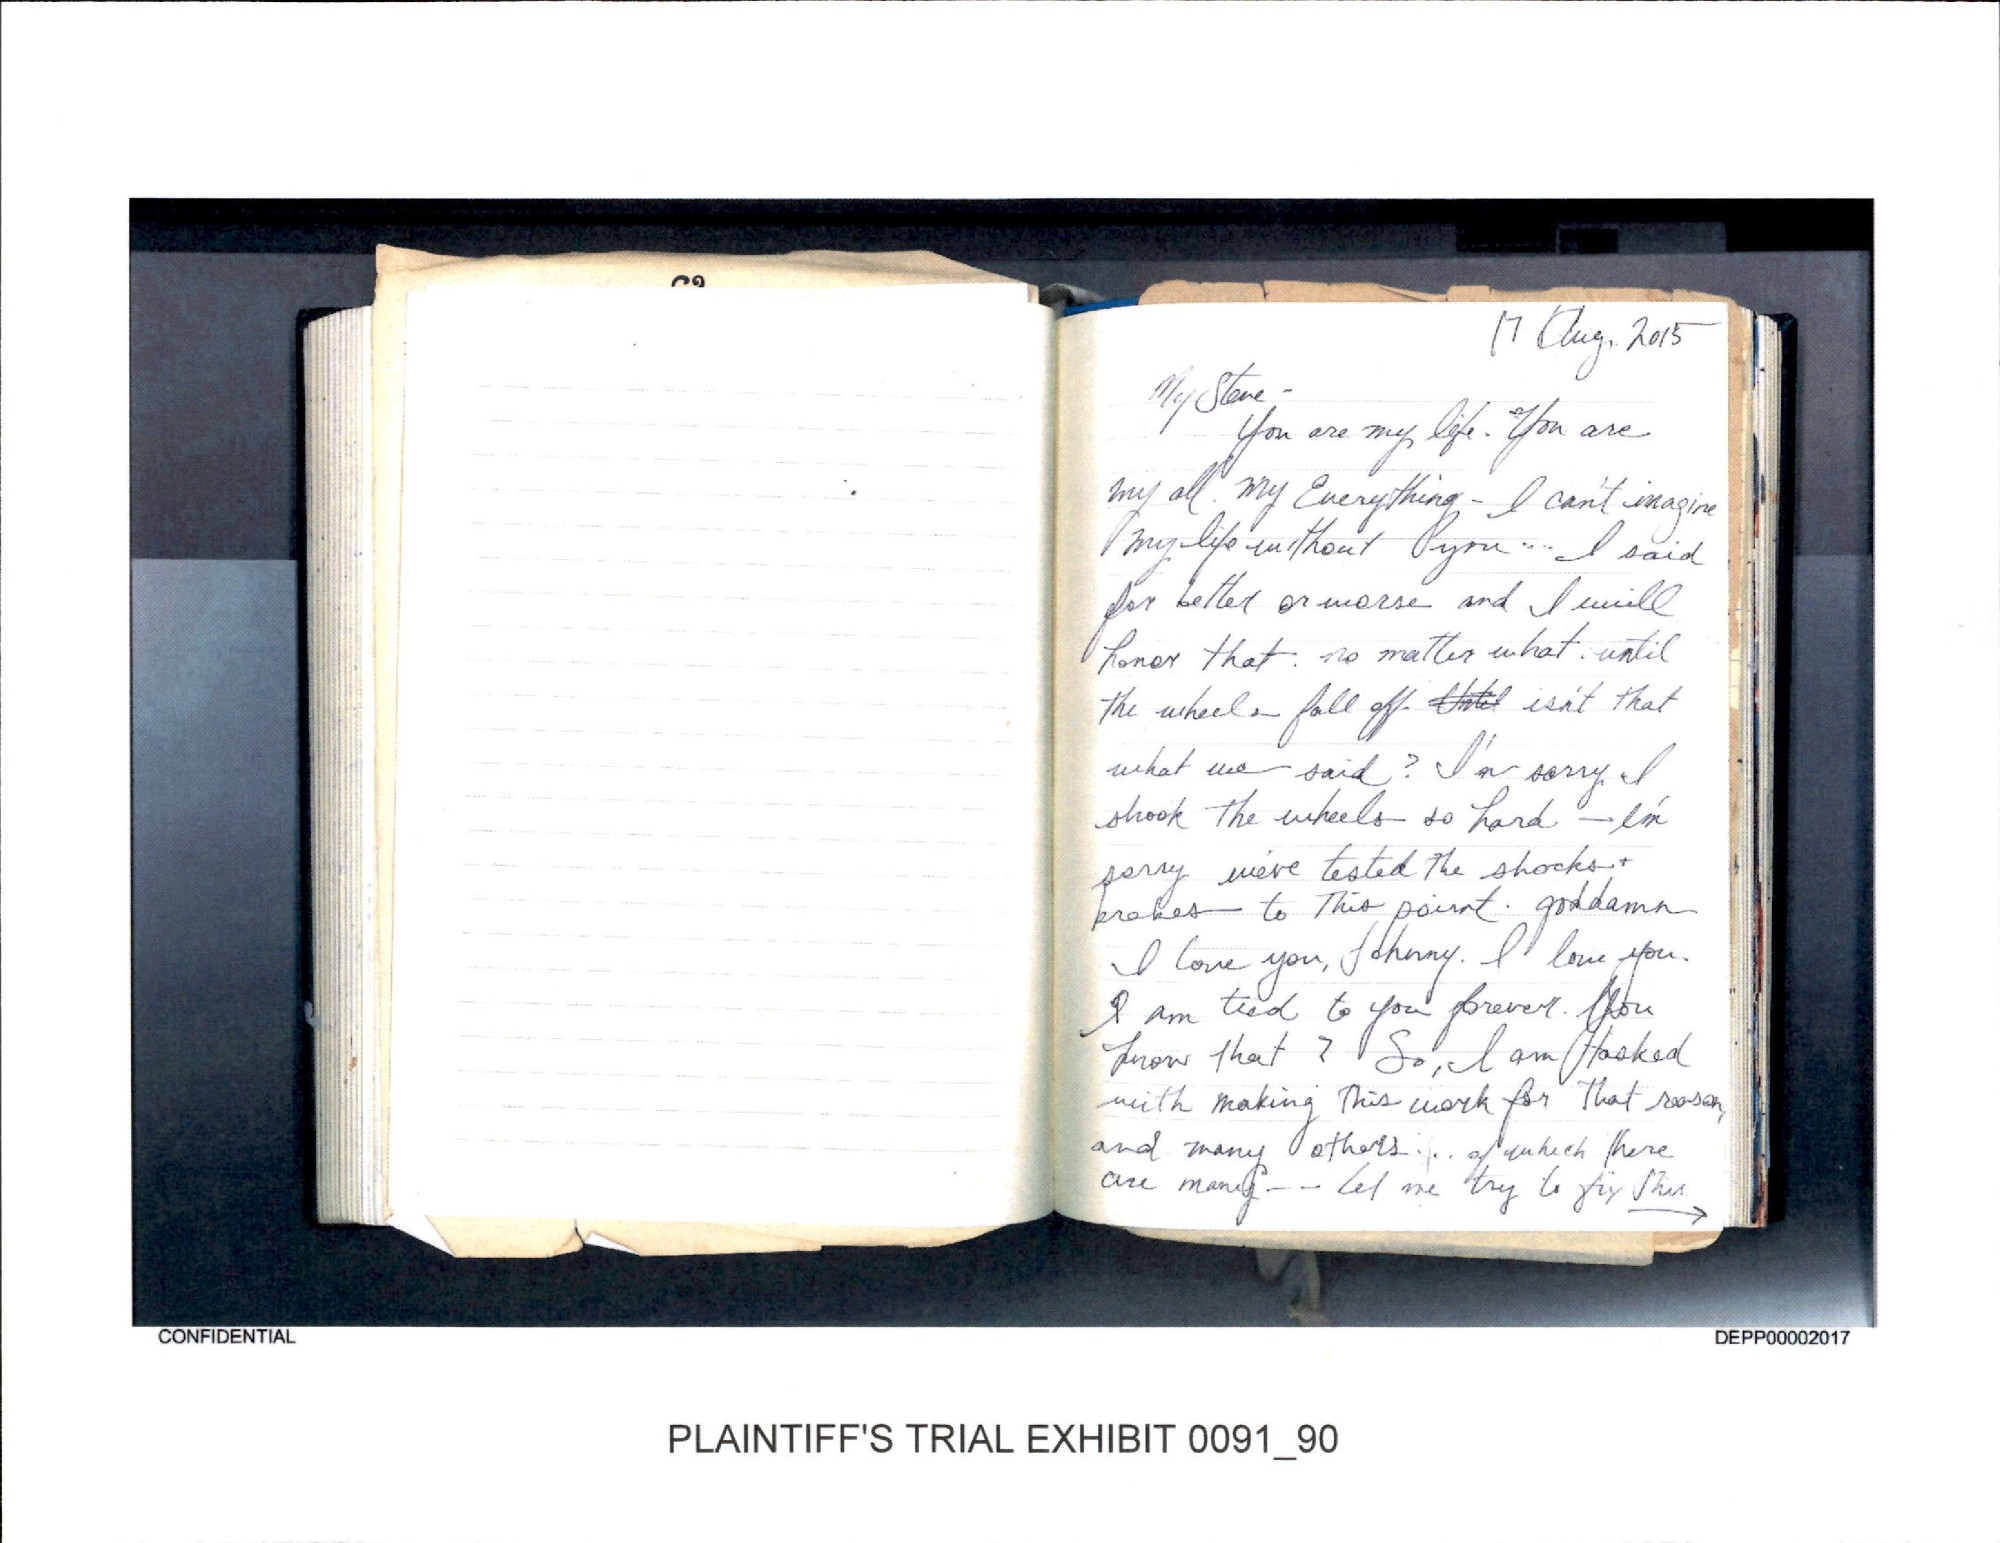 17 Aug. 2015
My Steve -
You are my life. You are
my all. My Everything - I can't imagine
my life without you .... I said
for better or worse and I will
honor that. no matter what. until
the wheels fall off. Until isn't that
what we said? I'm sorry I
shook the wheels so hard — I'm
sorry we've tested the shocks +
brakes to this point. goddamn
I love you, Johnny. I love you.
I am tied to you forever. You
know that? So, I am tasked
with making this work for that reason,
and many others... of which there
are many -- Let me try to fix this →
CONFIDENTIAL
DEPP00002017
PLAINTIFF'S TRIAL EXHIBIT 0091_90